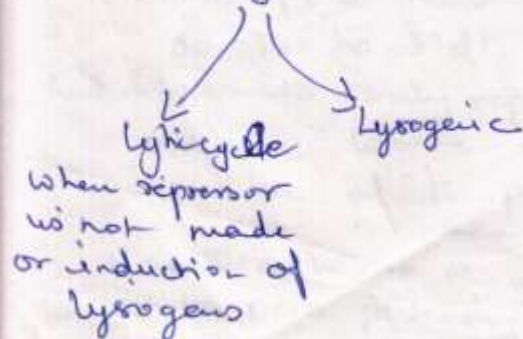 Lytic cycle
Lysogenic
when repressor
is not made
or induction of
lysogens